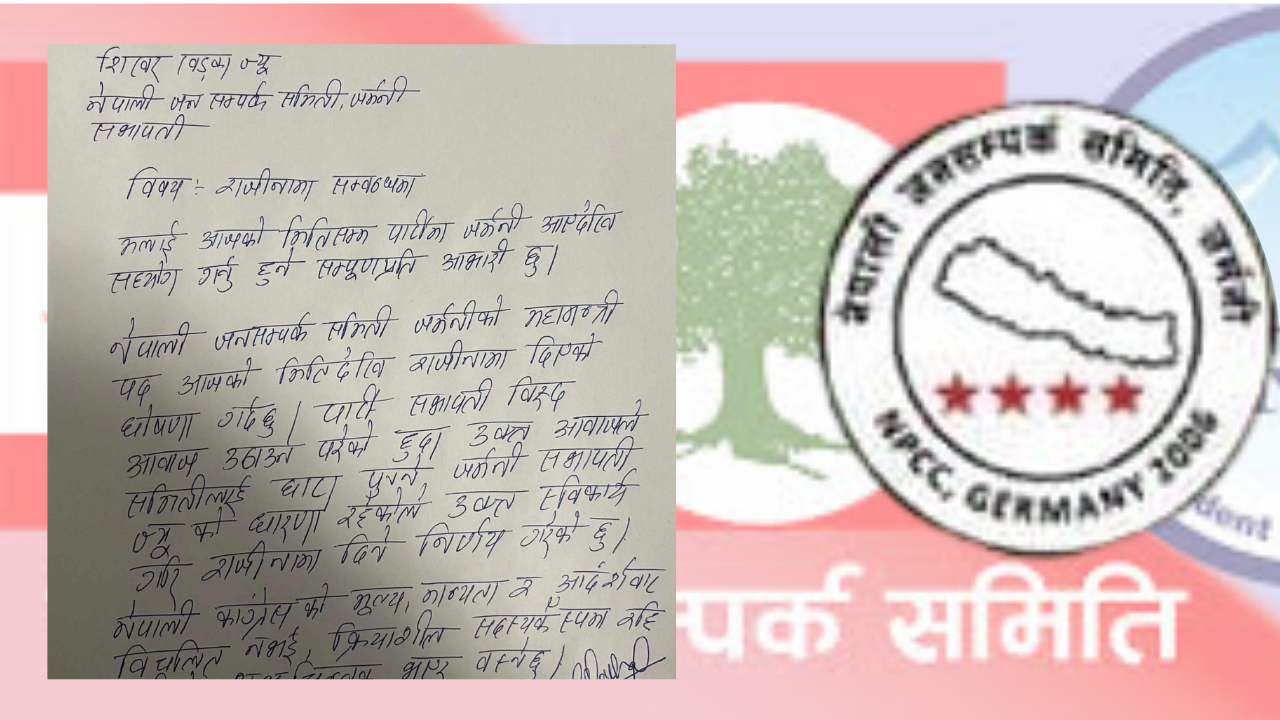 शिखर खड्का ज्यू
नेपाली जन सम्पर्क समिती, जर्मनी
सभापती
विषय :- राजीनामा सम्बन्धमा
मलाई आजको मितिसम्म पार्टीमा जर्मनी आएदेखि
सहयोग गर्नु हुने सम्पूर्णप्रति आभारी छु।
नेपाली जनसम्पर्क समिती जर्मनीको महामन्त्री
पद आजको मिति देखि राजीनामा दिएको
घोषणा गर्दछु। पार्टी सभापती विरुद्द
आवाज उठाउन परेको हुदा उक्त आवाजले
समितीलाई घाटा पुग्ने जर्मनी सभापती
ज्यू को धारणा रहेकोले उक्त स्विकार्य
गरि राजीनामा दिने निर्णय गरेको छु।
नेपाली कांग्रेस को मूल्य, मान्यता र आदर्शवाट
विचलित नभई, क्रियाशील सदस्यकै रुपमा रहि
भएर बस्नेछु।
नेपाली जनसम्पर्क समिति, जर्मनी
NPCC, GERMANY 2006
dent
म्पर्क समिति